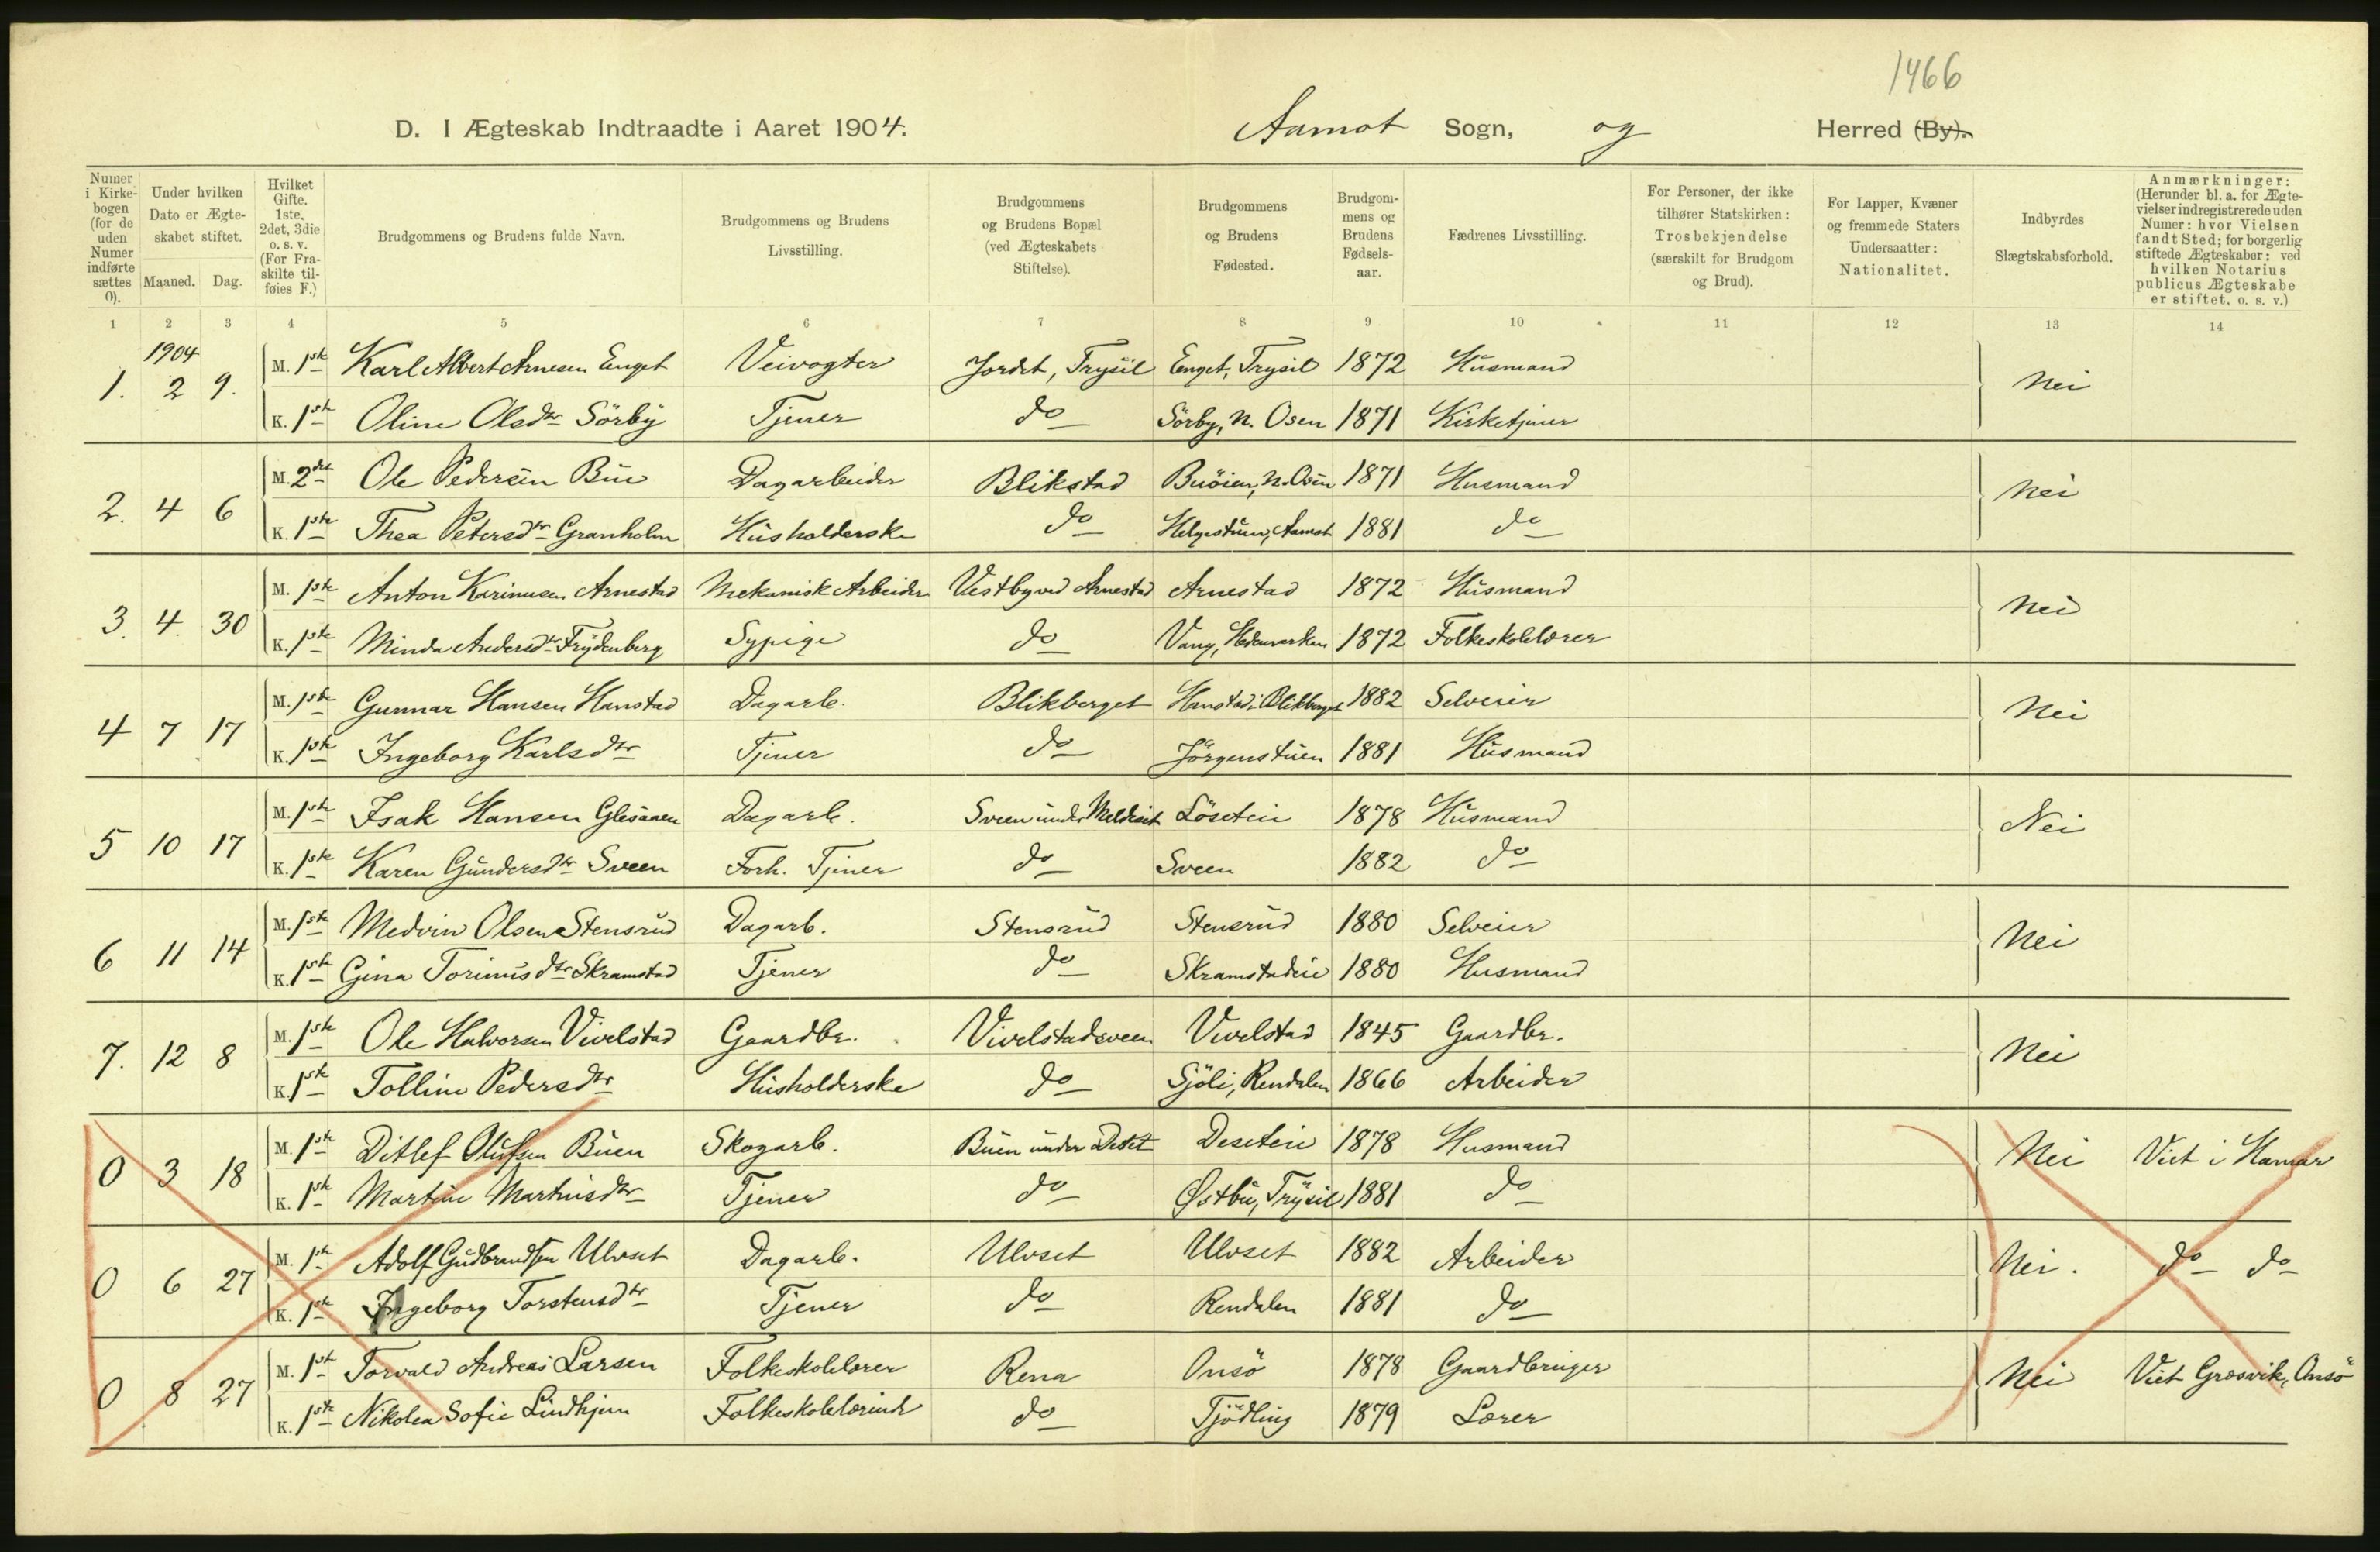 1466
D. I Ægteskab Indtraadte i Aaret 1904. Aamot Sogn, og Herred (By).
Numer i Kirkebogen (for de uden Numer indførte sættes 0). Under hvilken Dato er Ægteskabet stiftet. Maaned. Dag. Hvilket Gifte. 1ste, 2det, 3die o. s. v. (For Fraskilte tilføies F.) Brudgommens og Brudens fulde Navn. Brudgommens og Brudens Livsstilling. Brudgommens og Brudens Bopæl (ved Ægteskabets Stiftelse). Brudgommens og Brudens Fødested. Brudgommens og Brudens Fødselsaar. Fædrenes Livsstilling. For Personer, der ikke tilhører Statskirken: Trosbekjendelse (særskilt for Brudgom og Brud). For Lapper, Kvæner og fremmede Staters Undersaatter: Nationalitet. Indbyrdes Slægtskabsforhold. Anmærkninger: (Herunder bl. a. for Ægtevielser indregistrerede uden Numer: hvor Vielsen fandt Sted; for borgerlig stiftede Ægteskaber: ved hvilken Notarius publicus Ægteskabe er stiftet, o. s. v.)
1 2 3 4 5 6 7 8 9 10 11 12 13 14
1904
1. 2 9. M. 1ste Karl Albert Arnesen Enget Veivogter Jordet, Trysil Enget, Trysil 1872 Husmand Nei
K. 1ste Oline Olsdtr Sörby Tjener do Sörby, N. Osen 1871 Kirketjener
2. 4 6 M. 2det Ole Pedersen Bue Dagarbeider Blikstad Buöien, N. Osen 1871 Husmand Nei
K. 1ste Thea Petersdtr Granholm Husholderske do Helgestuen, Aamot 1881 do
3. 4. 30 M. 1ste Anton Karinusen Arnestad Mekanisk Arbeider Vestby ved Arnestad Arnestad 1872 Husmand Nei
K. 1ste Minda Andersdtr Frydenberg Sypige do Vang, Hedemarken 1872 Folkeskolelærer
4 7 17 M. 1ste Gunnar Hansen Hanstad Dagarb. Blikberget Hanstad i Blikberget 1882 Selveier Nei
K. 1ste Ingeborg Karlsdtr Tjener do Jörgenstuen 1881 Husmand
5 10 17 M. 1ste Isak Hansen Glesaaen Dagarb. Sveen under Meldeseet Löseteie 1878 Husmand Nei
K. 1ste Karen Gundersdtr Sveen Forh. Tjener do Sveen 1882 do
6 11 14 M. 1ste Medvin Olsen Stensrud Dagarb. Stensrud Stensrud 1880 Selveier Nei
K. 1ste Gina Torinusdtr Skramstad Tjener do Skramstadeie 1880 Husmand
7. 12 8 M. 1ste Ole Halvorsen Vivelstad Gaardbr. Vivelstadsveen Vivelstad 1845 Gaardbr. Nei
K. 1ste Tolline Pedersdtr Husholderske do Sjöli, Rendalen 1866 Arbeider
0 3 18 M. 1ste Ditlef Olufsen Buen Skogarb. Buen under Deset Deseteie 1878 Husmand Nei Viet i Hamar
K. 1ste Martine Martinsdtr Tjener do Østbu, Trysil 1881 do
0 6 27 M. 1ste Adolf Gudbrandsen Ulvset Dagarb. Ulvset Ulvset 1882 Arbeider Nei. do do
K. 1ste Ingeborg Torstensdtr Tjener do Rendalen 1881 do
0 8 27 M. 1ste Torvald Andreas Larsen Folkeskolelærer Rena Onsö 1878 Gaardbruger Nei Viet Græsvik, Onsö
K. 1ste Nikolea Sofie Lindhjem Folkeskolelærinde do Tjödling 1879 Lærer